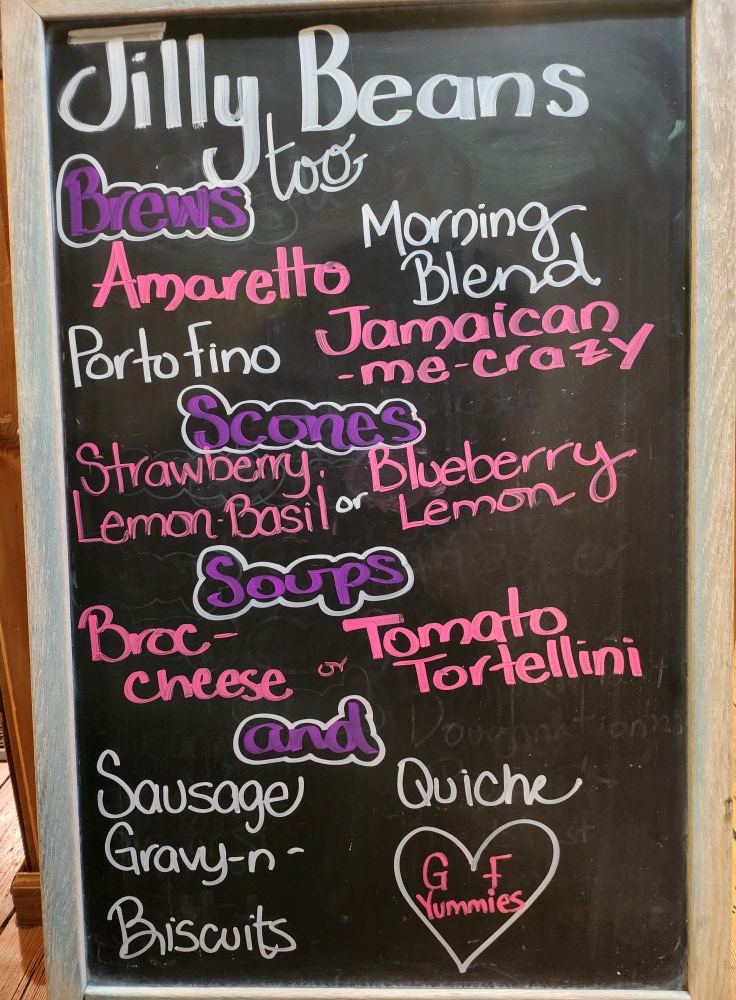 Jilly Beans
too
Brews
Amaretto
Morning
Blend
Portofino
Jamaican
-me-crazy
Scones
Strawberry.
Lemon-Basil
or
Blueberry
Lemon
Soups
Broc-
cheese
or
Tomato
Tortellini
and
Sausage
Gravy-n-
Biscuits
Quiche
G F
Yummies